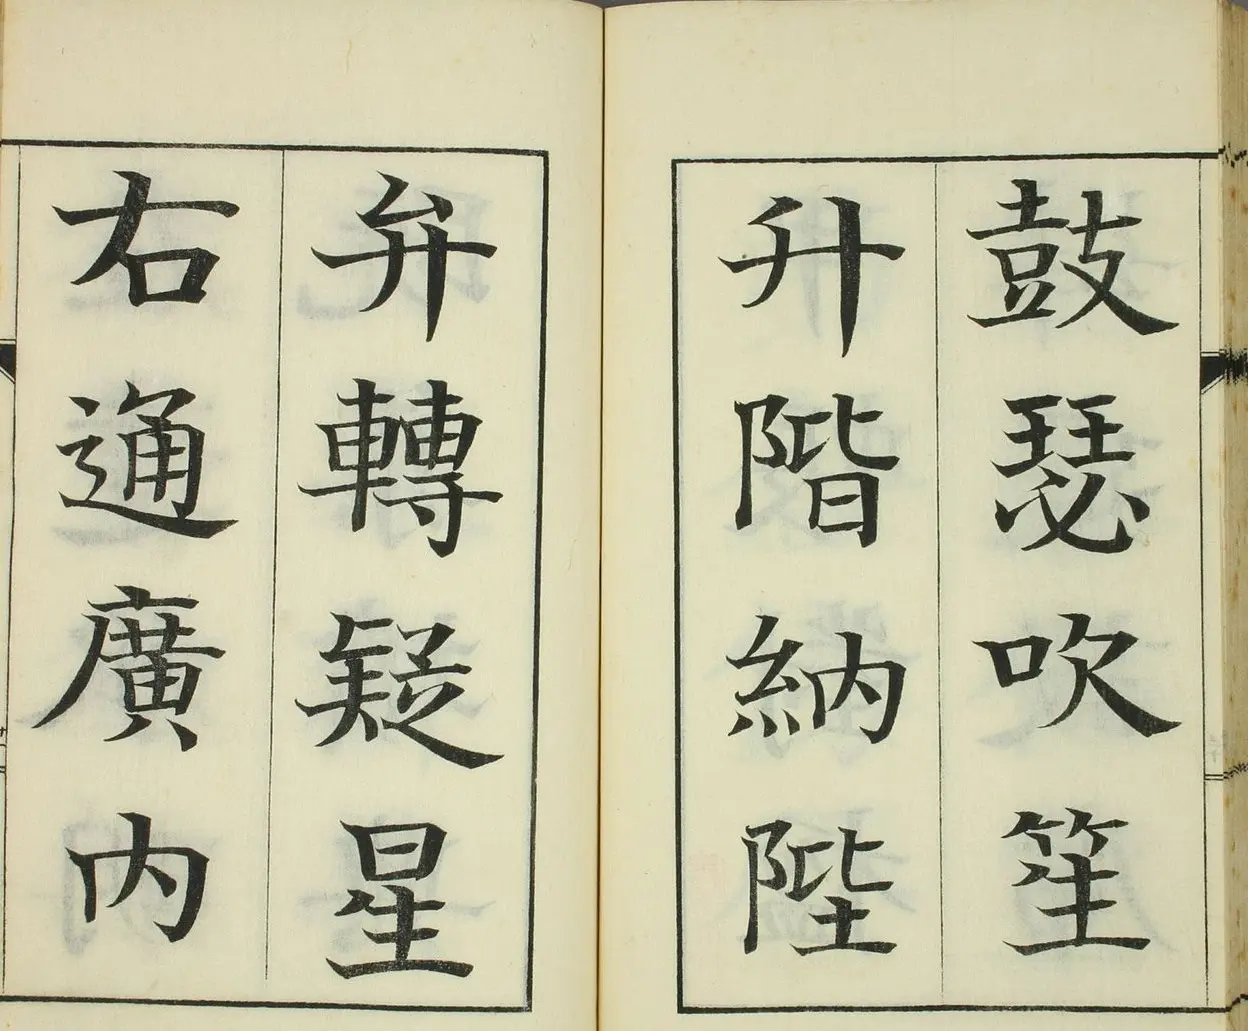 鼓瑟吹笙
升階納陛
弁轉疑星
右通廣内